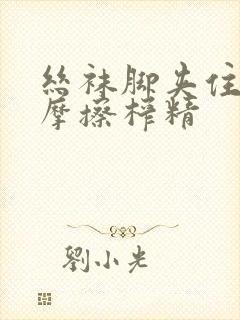 絲袜脚夹住
摩擦榨精
劉小光